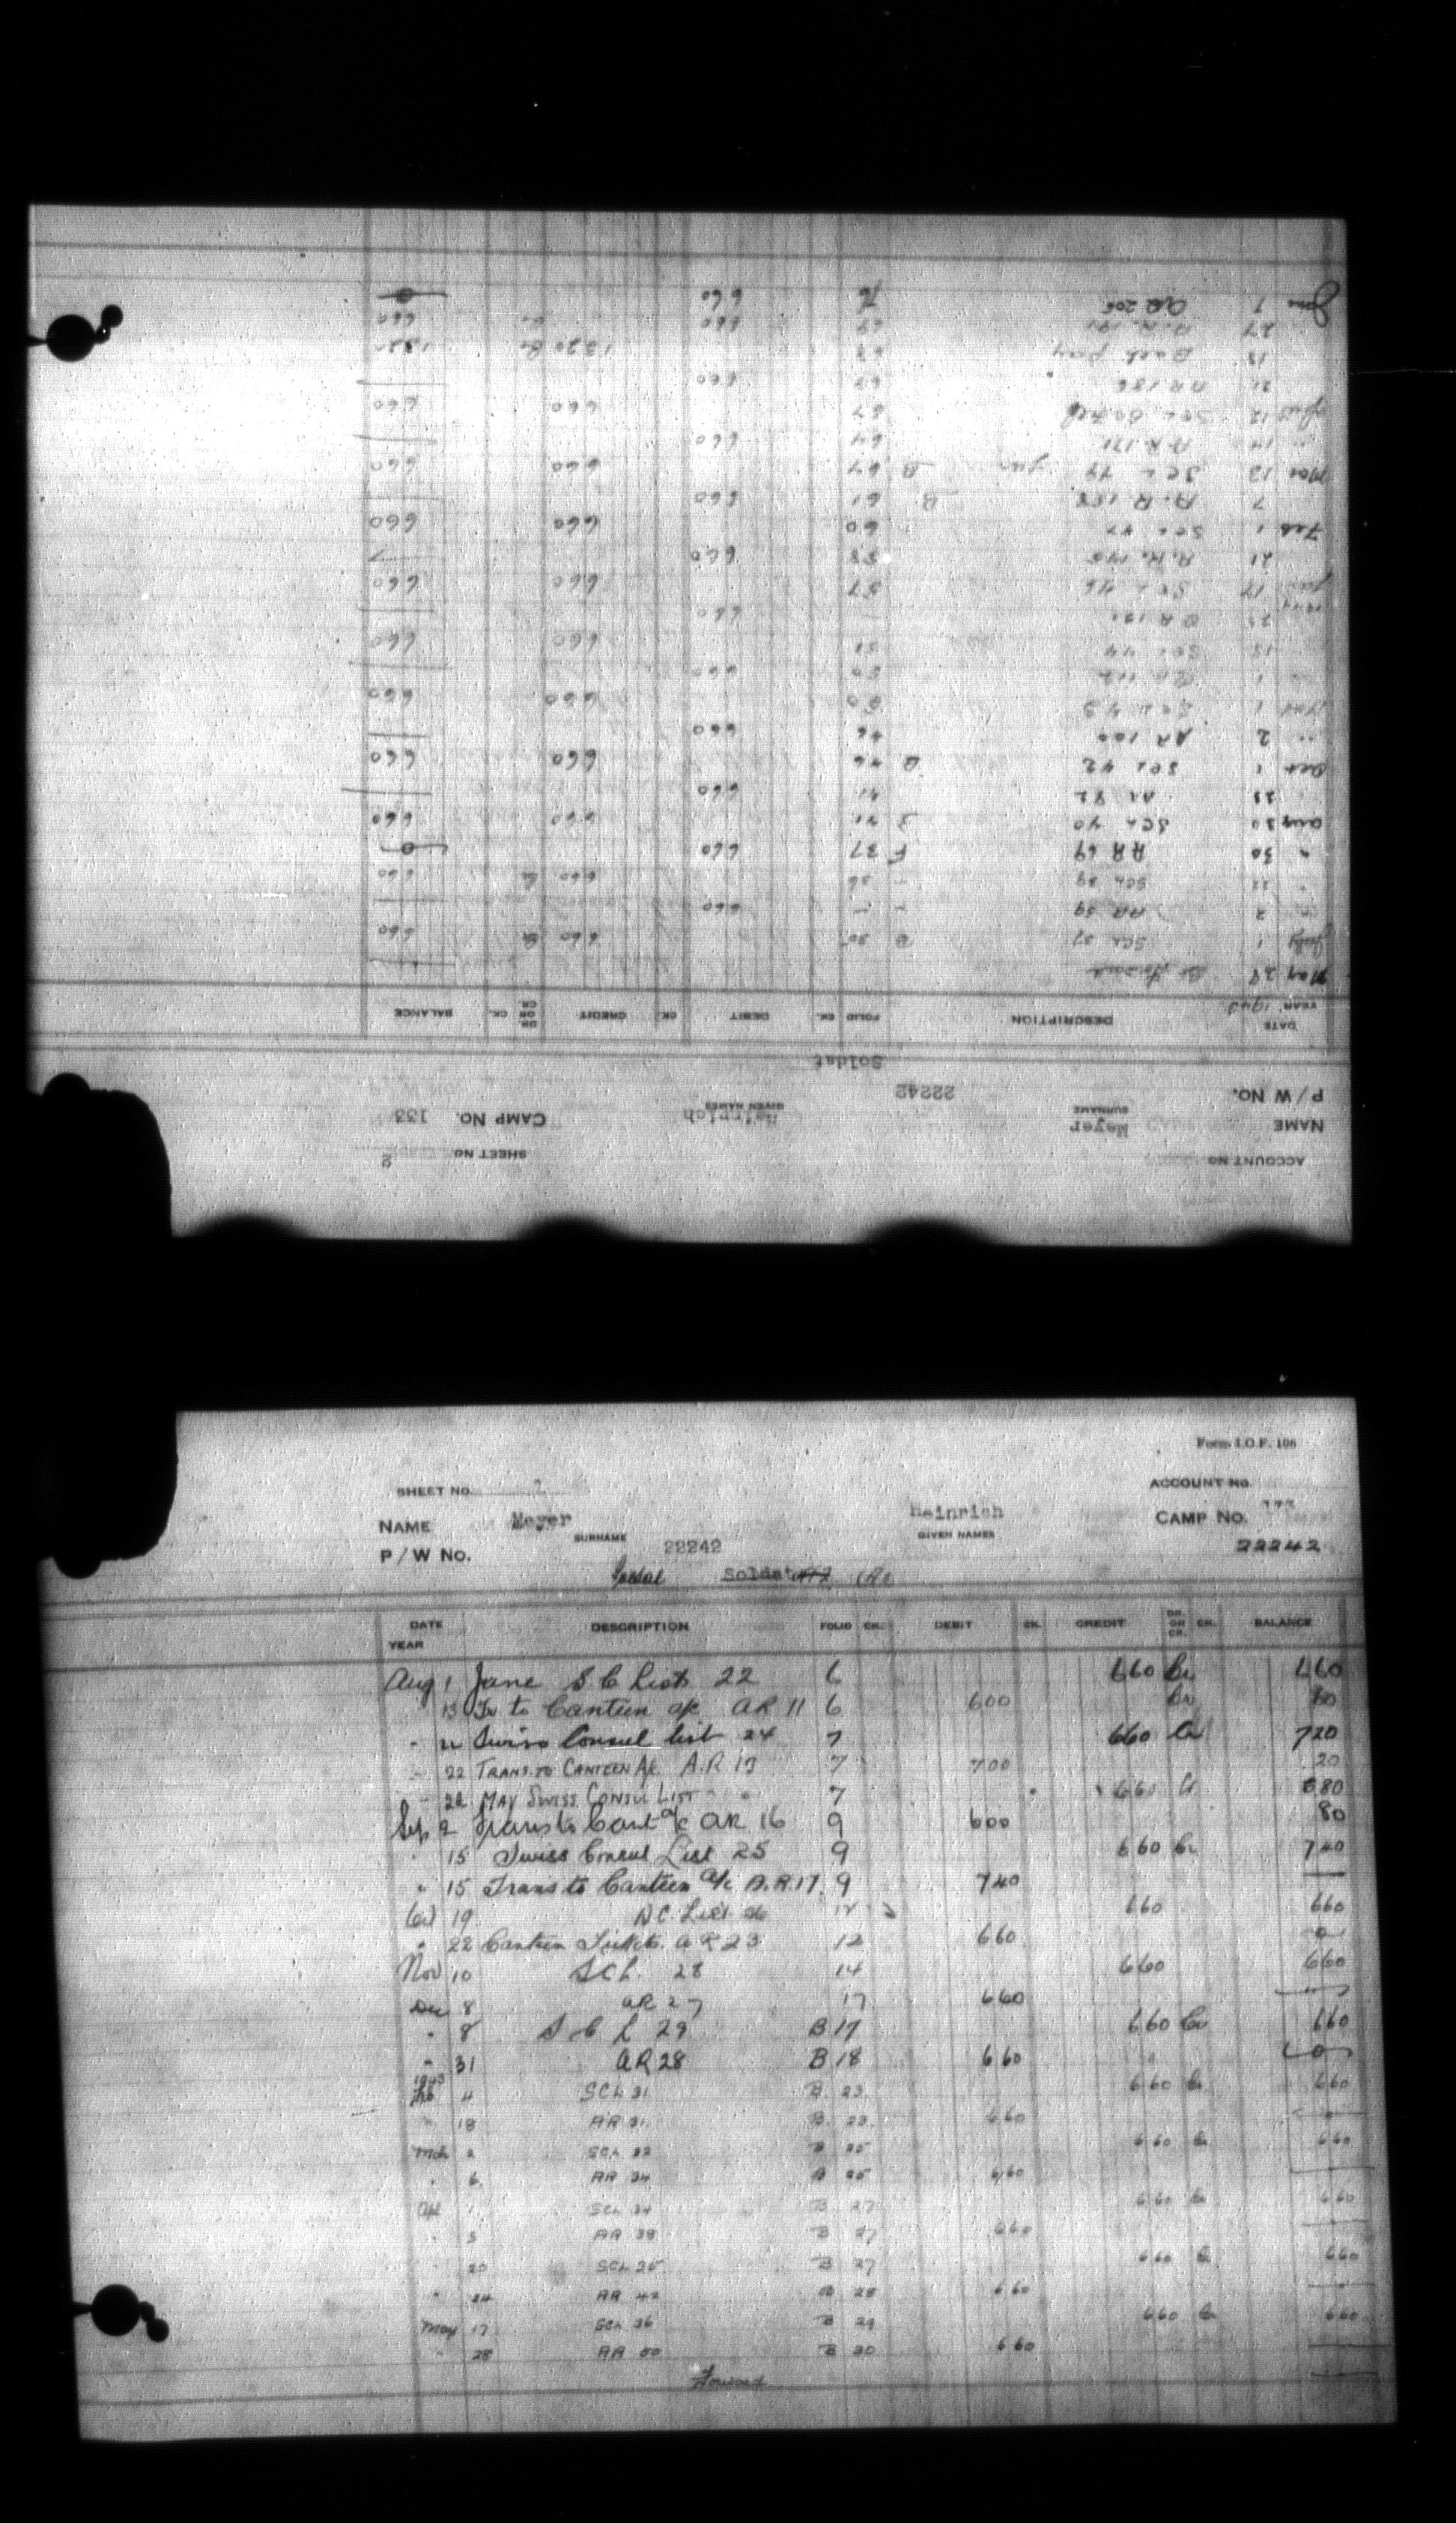 Form I.O.F. 106
SHEET NO. ACCOUNT NO.
NAME Meyer Heinrich CAMP NO.
SURNAME GIVEN NAMES
P/W No. 22242 22242
Soldat
DATE YEAR DESCRIPTION FOLIO CK. DEBIT CK. CREDIT DR. OR CR. CK. BALANCE
Aug 1 June S C List 22 6 660 Cr 660
13 Tr to Canteen a/c AR 11 6 600 Cr 60
" Swiss Consul list 24 7 660 Cr 720
" 22 TRANS. TO CANTEEN A/C A.R 13 7 700 20
" 22 MAY SWISS CONSUL LIST " 7 660 Cr 680
Sep 2 Trans to Cant a/c AR 16 9 600 80
" 15 Swiss Consul List 25 9 660 Cr 740
" 15 Trans to Canteen a/c A.R. 17. 9 740 —
Oct 19 S.C. List 26 12 660 660
" 22 Canteen Tickets AR 23 12 660 0
Nov 10 SCL 28 14 660 660
Dec 8 AR 27 17 660 —
" 8 S C L 29 B 17 660 Cr 660
" 31 AR 28 B 18 660 0
1943
Feb 4 SCL 31 B. 23. 660 Cr 660
" 18 AR 31 B. 23. 660
Mch 2 SCL 32 B 25 660 Cr 660
" 6. AR 34 B 25 660 —
Apl 1 SCL 34 B 27 660 Cr 660
" 3 AR 38 B 27 660 —
" 20 SCL 35 B 27 660 Cr 660
" 24 AR 42 B 28 660 —
May 17 SCL 36 B 29 660 Cr 660
" 28 AR 50 B 30 660 —
Forward
ACCOUNT NO. SHEET NO. 2
NAME Meyer Heinrich CAMP NO. 133
SURNAME GIVEN NAMES
P/W NO. 22242
Soldat
DATE YEAR 1943 DESCRIPTION FOLIO CK. DEBIT CK. CREDIT DR. OR CR. CK. BALANCE
May 28 Forward —
July 1 SCL 37 B 30 660 Cr 660
" 2 AR 59 660 —
" 22 SCL 39 36 660 Cr 660
" 30 AR 69 F 37 660 0
Aug 30 SCL 40 41 660 660
AR 82 41 660 —
Oct 1 SCL 42 B 46 660 660
" 2 AR 100 46 660
Nov 1 SCL 43 50 660 660
" 1 AR 112 50 660 —
" 15 SCL 44 51 660 660
AR 121 660 —
1944
Jan 17 SCL 46 57 660 660
21 A.R. 140 58 660 —
Feb 1 SCL 47 60 660 660
7 A.R 158 B. 61 660 —
Mar 13 SCL 49 Jan B 64 660 660
14 AR 171 64 660 —
April 12 SCL 50 Feb 67 660 660
21 AR 186 660 —
Back pay 1320 Cr 1320
27 A.R. 191 69 660 660
June 1 AR 205 660 0